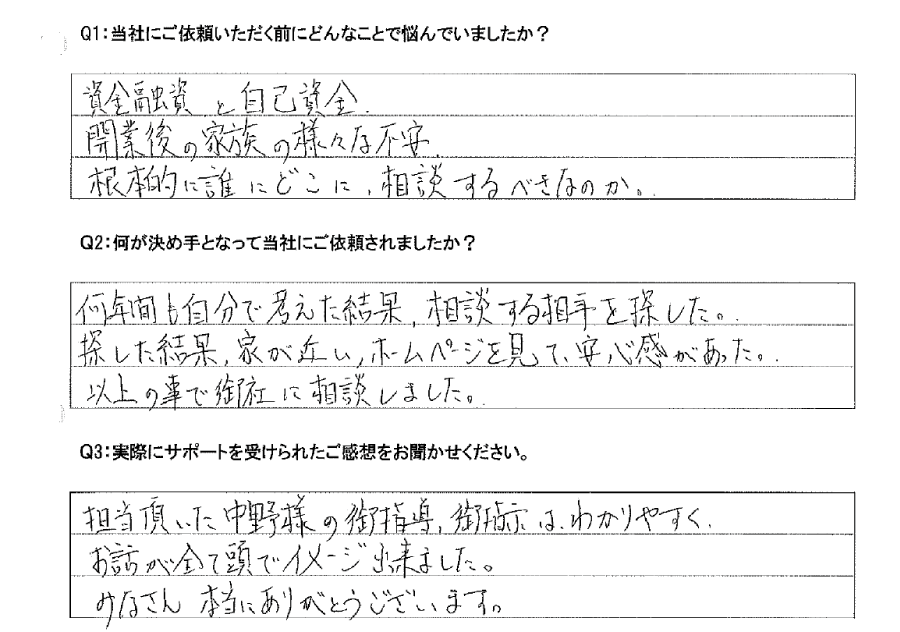 Q1:当社にご依頼いただく前にどんなことで悩んでいましたか?
資金融資 と自己資金.
開業後の家族の様々な不安.
根本的に誰にどこに、相談するべきなのか。
Q2:何が決め手となって当社にご依頼されましたか?
何年間も自分で考えた結果、相談する相手を探した。
探した結果、家が近い、ホームページを見て、安心感があった。
以上の事で御社に相談しました。
Q3:実際にサポートを受けられたご感想をお聞かせください。
担当頂いた中野様の御指導、御指示は、わかりやすく、
お話が全て頭でイメージ出来ました。
みなさん 本当にありがとうございます。